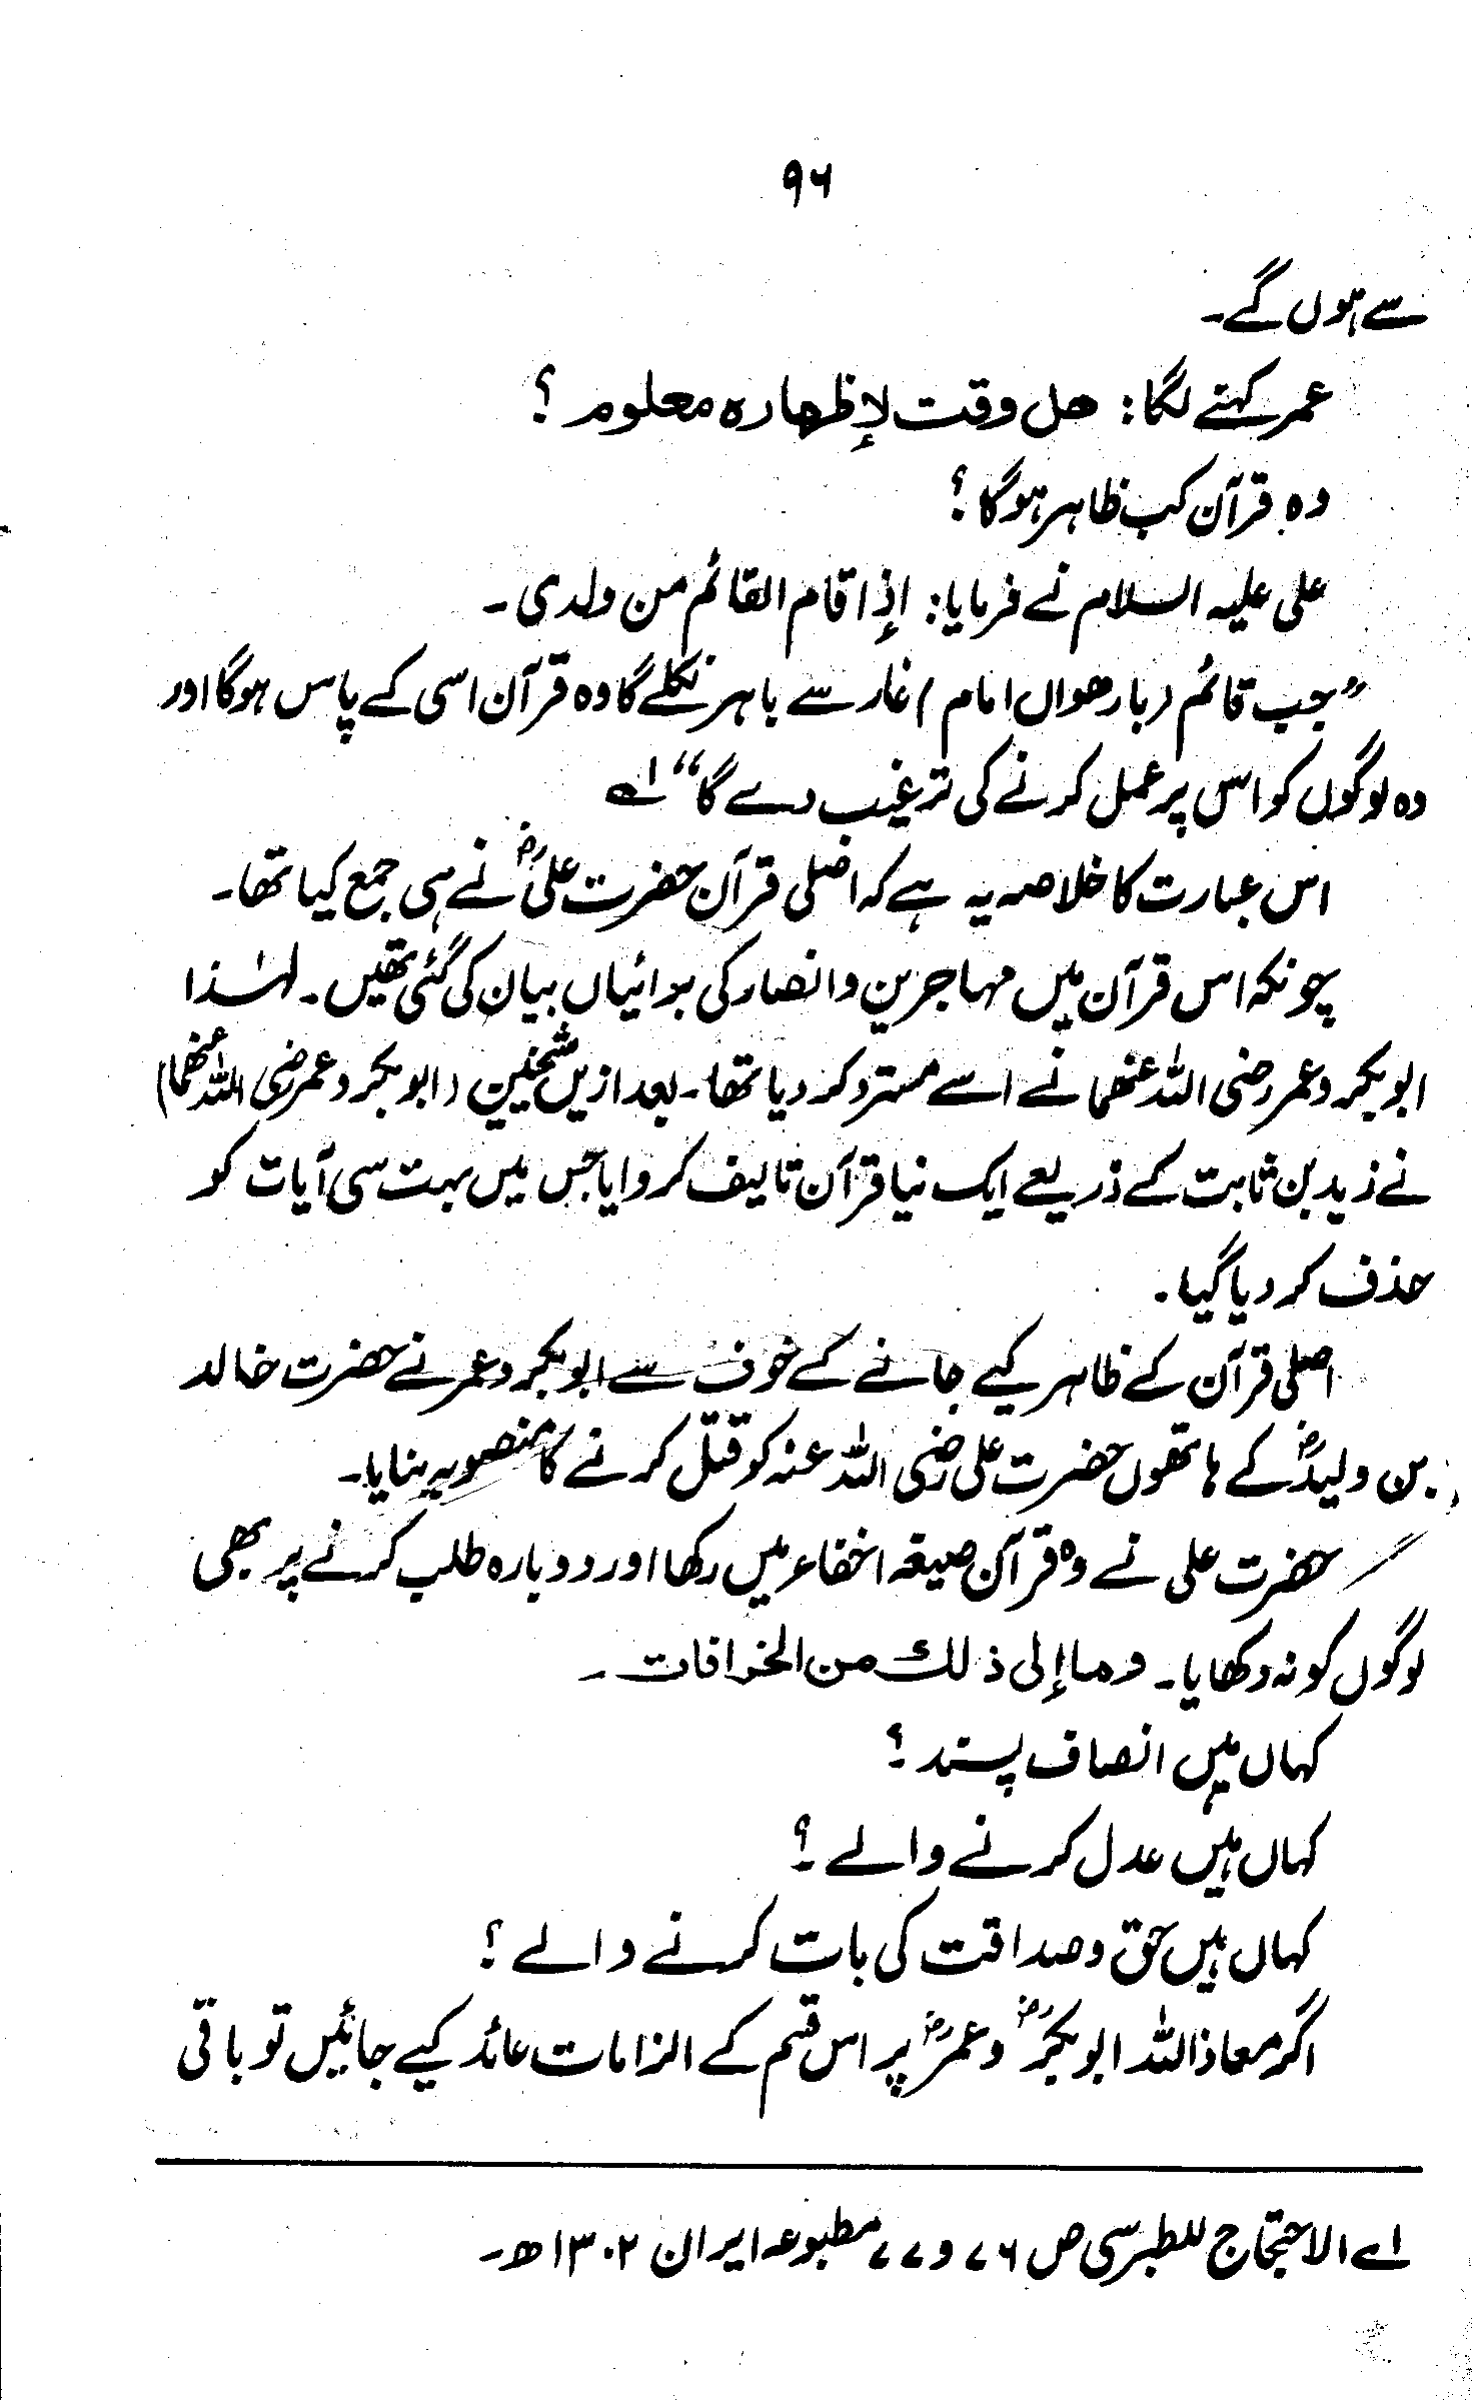 ۹۶
سے ہوں گے۔
عمر کہنے لگا: هل وقت لإظهاره معلوم؟
وہ قرآن کب ظاہر ہوگا؟
علی علیہ السلام نے فرمایا: إذا قام القائم من ولدی۔
”جب قائم (بارھواں امام) غار سے باہر نکلے گا وہ قرآن اسی کے پاس ہوگا اور
وہ لوگوں کو اس پر عمل کرنے کی ترغیب دے گا“ ۱ے
اس عبارت کا خلاصہ یہ ہے کہ اصلی قرآن حضرت علیؓ نے ہی جمع کیا تھا۔
چونکہ اس قرآن میں مہاجرین و انصار کی برائیاں بیان کی گئی تھیں۔ لہٰذا
ابوبکر و عمر رضی اللہ عنھما نے اسے مسترد کر دیا تھا۔ بعد ازیں شیخین (ابوبکر و عمر رضی اللہ عنھما)
نے زید بن ثابت کے ذریعے ایک نیا قرآن تالیف کروایا جس میں بہت سی آیات کو
حذف کر دیا گیا۔
اصلی قرآن کے ظاہر کیے جانے کے خوف سے ابوبکر و عمر نے حضرت خالد
بن ولیدؓ کے ہاتھوں حضرت علی رضی اللہ عنہ کو قتل کرنے کا منصوبہ بنایا۔
حضرت علی نے وہ قرآن صیغہ اخفاء میں رکھا اور دوبارہ طلب کرنے پر بھی
لوگوں کو نہ دکھایا۔ وما إلی ذلك من الخرافات۔
کہاں ہیں انصاف پسند؟
کہاں ہیں عدل کرنے والے؟
کہاں ہیں حق و صداقت کی بات کرنے والے؟
اگر معاذ اللہ ابوبکرؓ و عمرؓ پر اس قسم کے الزامات عائد کیے جائیں تو باقی
۱ے الاحتجاج للطبرسی ص ۷۶ و ۷۷ مطبوعہ ایران ۱۳۰۲ھ۔